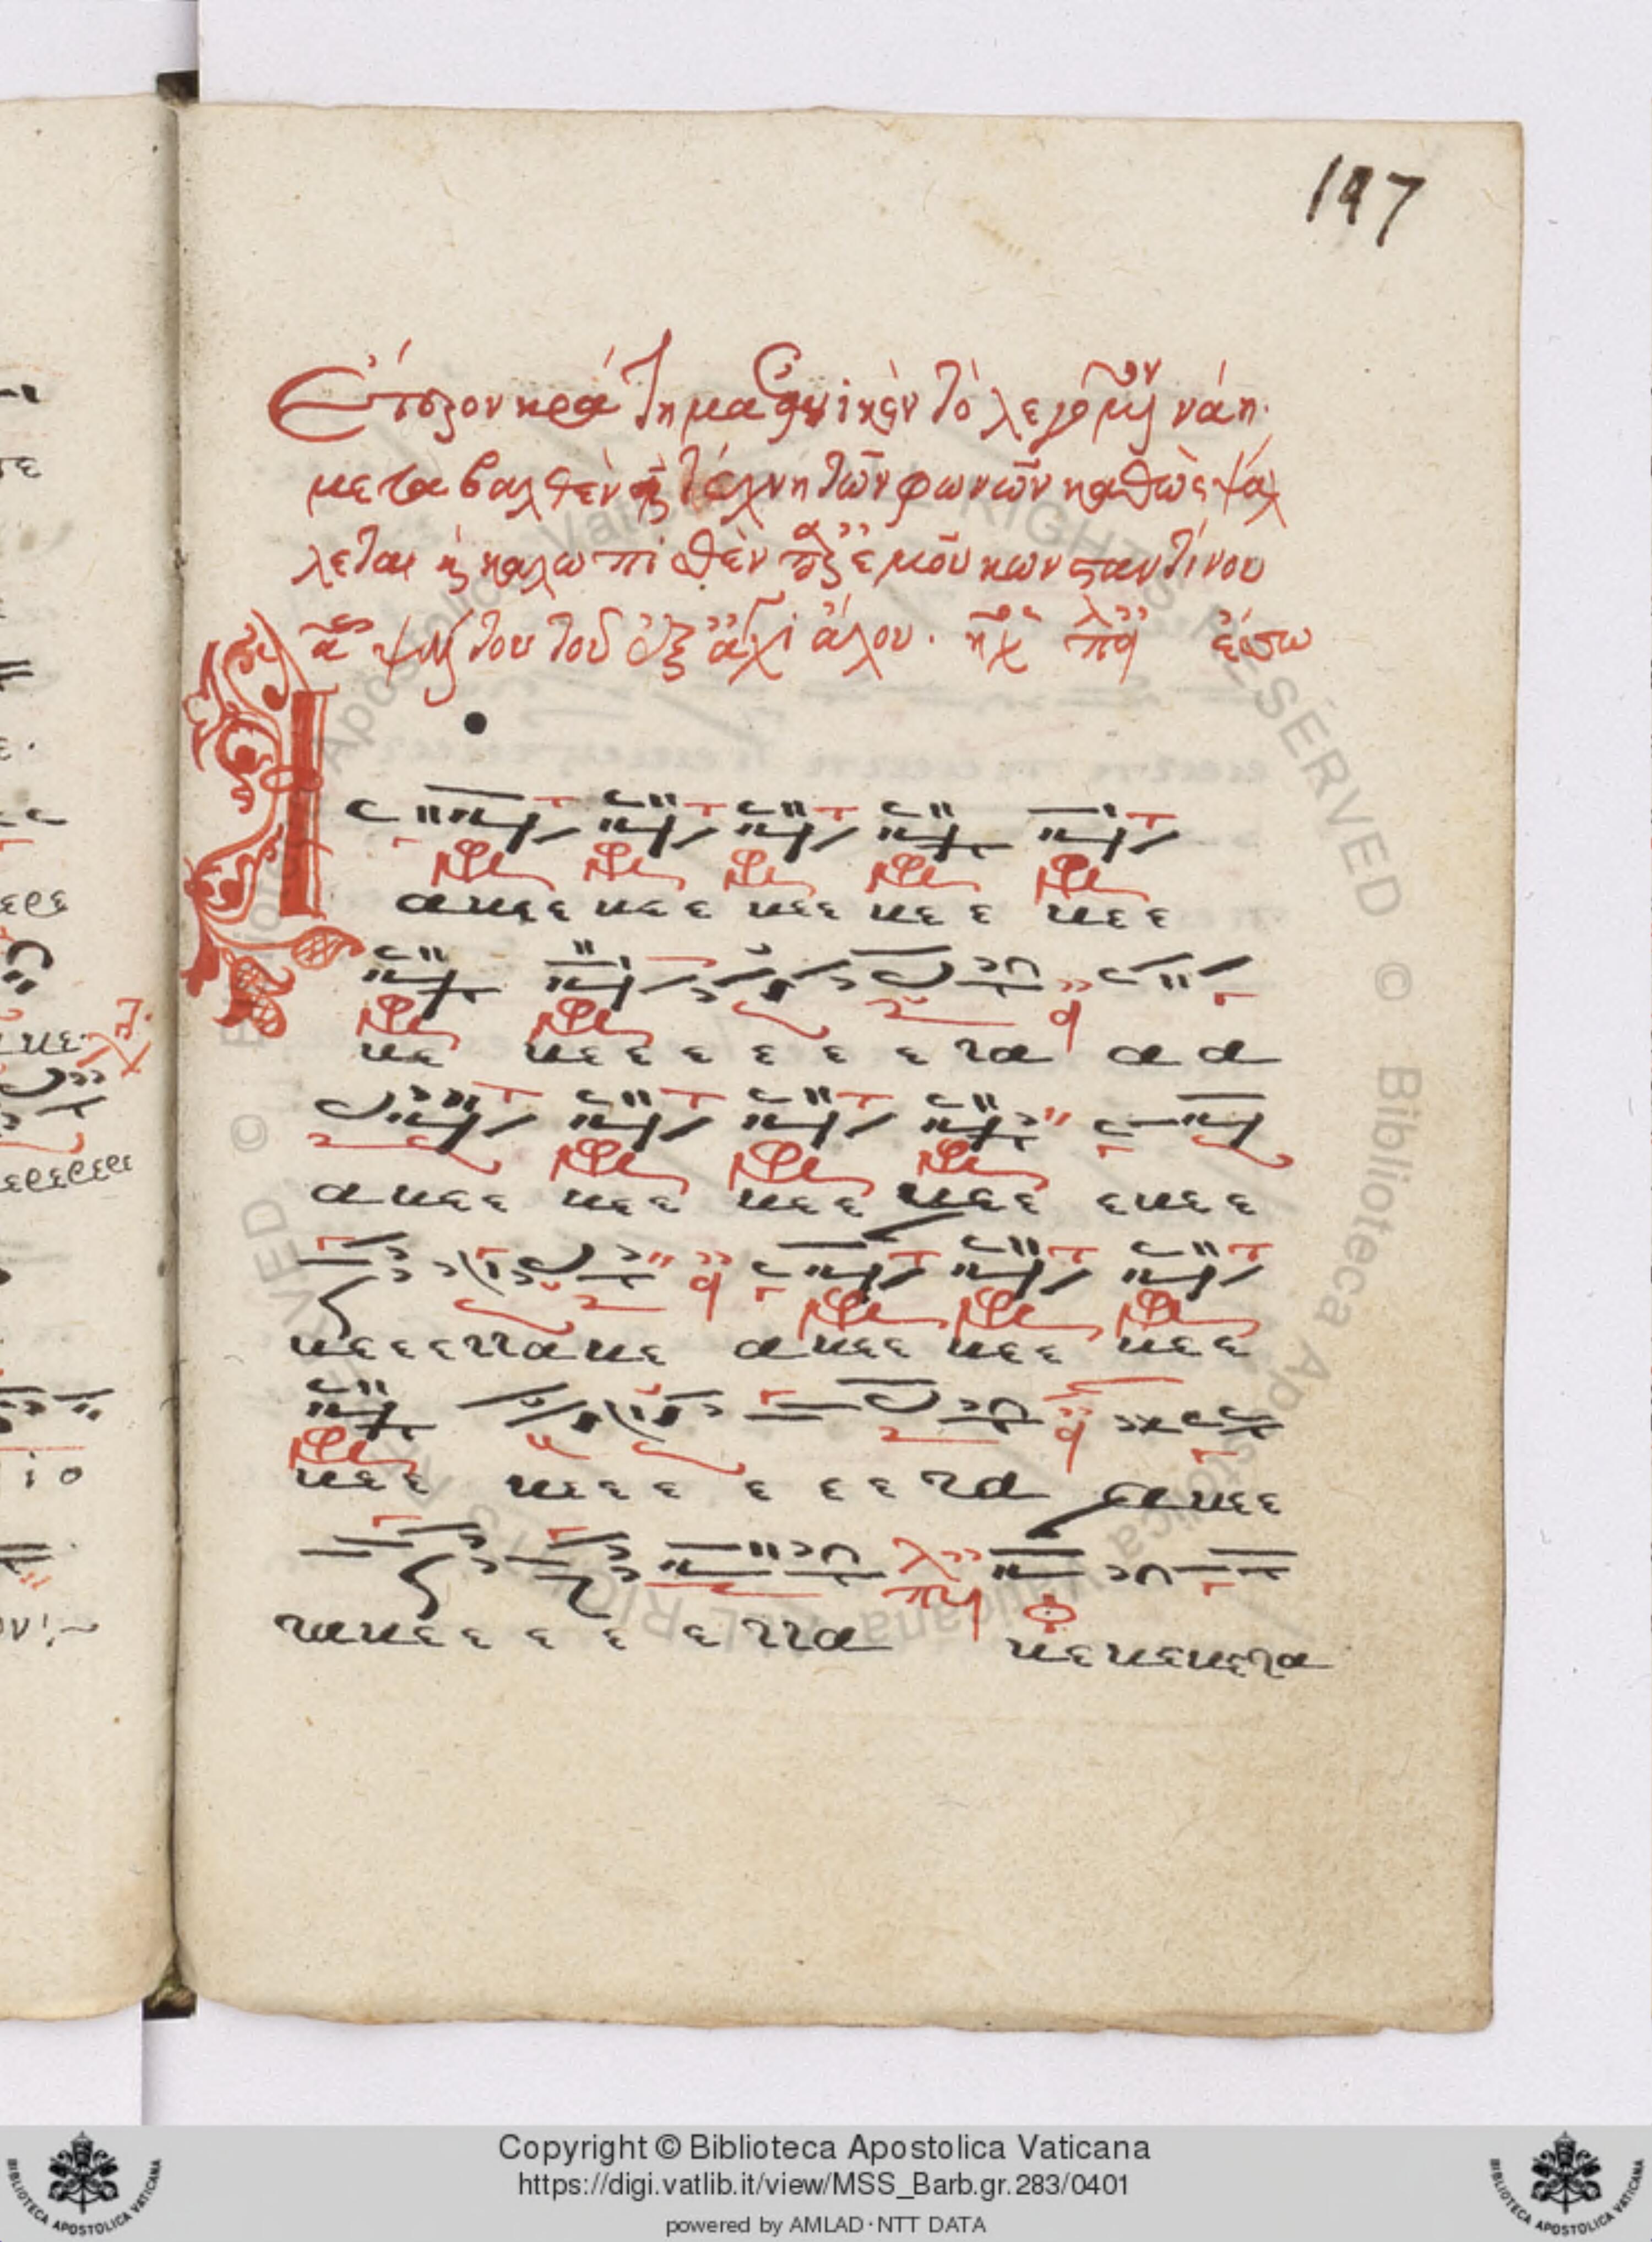 197
Ἕτερον κράτημα ἐθνικὸν τὸ λεγόμενον νάη·
μεταβαλθὲν τῇ τέχνη τῶν φωνῶν καθὼς ψάλ
λεται κ καλωπισθὲν παρ ἐμοῦ κωνσταντίνου
ψάλτου τοῦ ἐξ ἀγχιάλου. ἦχ πλ ἔσω
ανεε νεε νεε νεε νεε
νε νεε ε ε ε ε να α α
ανεε νεε νεε νεε ενεε
νεεενανε ανεε νεε νεε
νεε νεεε ε ε ε να ανεε
νανεε ε ε ε να νενενενα
Copyright © Biblioteca Apostolica Vaticana
https://digi.vatlib.it/view/MSS_Barb.gr.283/0401
powered by AMLAD·NTT DATA